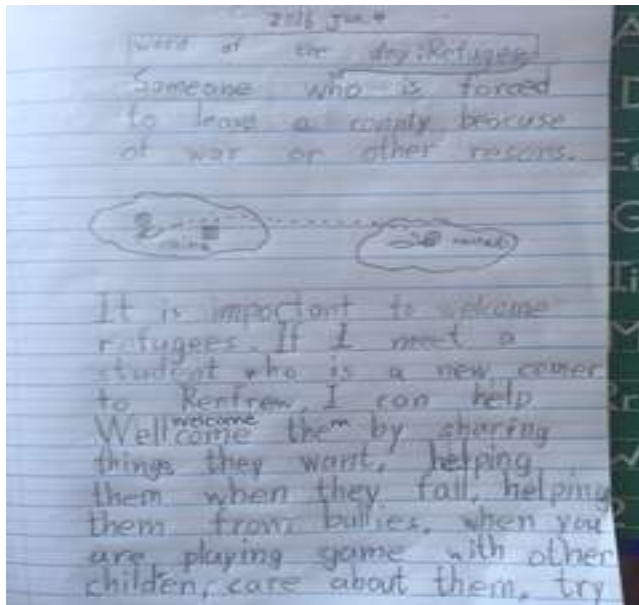 2016 Jan 4
word of the day: Refugee
Someone who is forced
to leave a county beacuse
of war or other resons.
It is important to welcome
refugees. If I meet a
student who is a new comer
to Renfrew, I can help
welcome
Wellcome them by sharing
things they want, helping
them when they fall, helping
them from bullies, when you
are playing game with other
childen, care about them, try